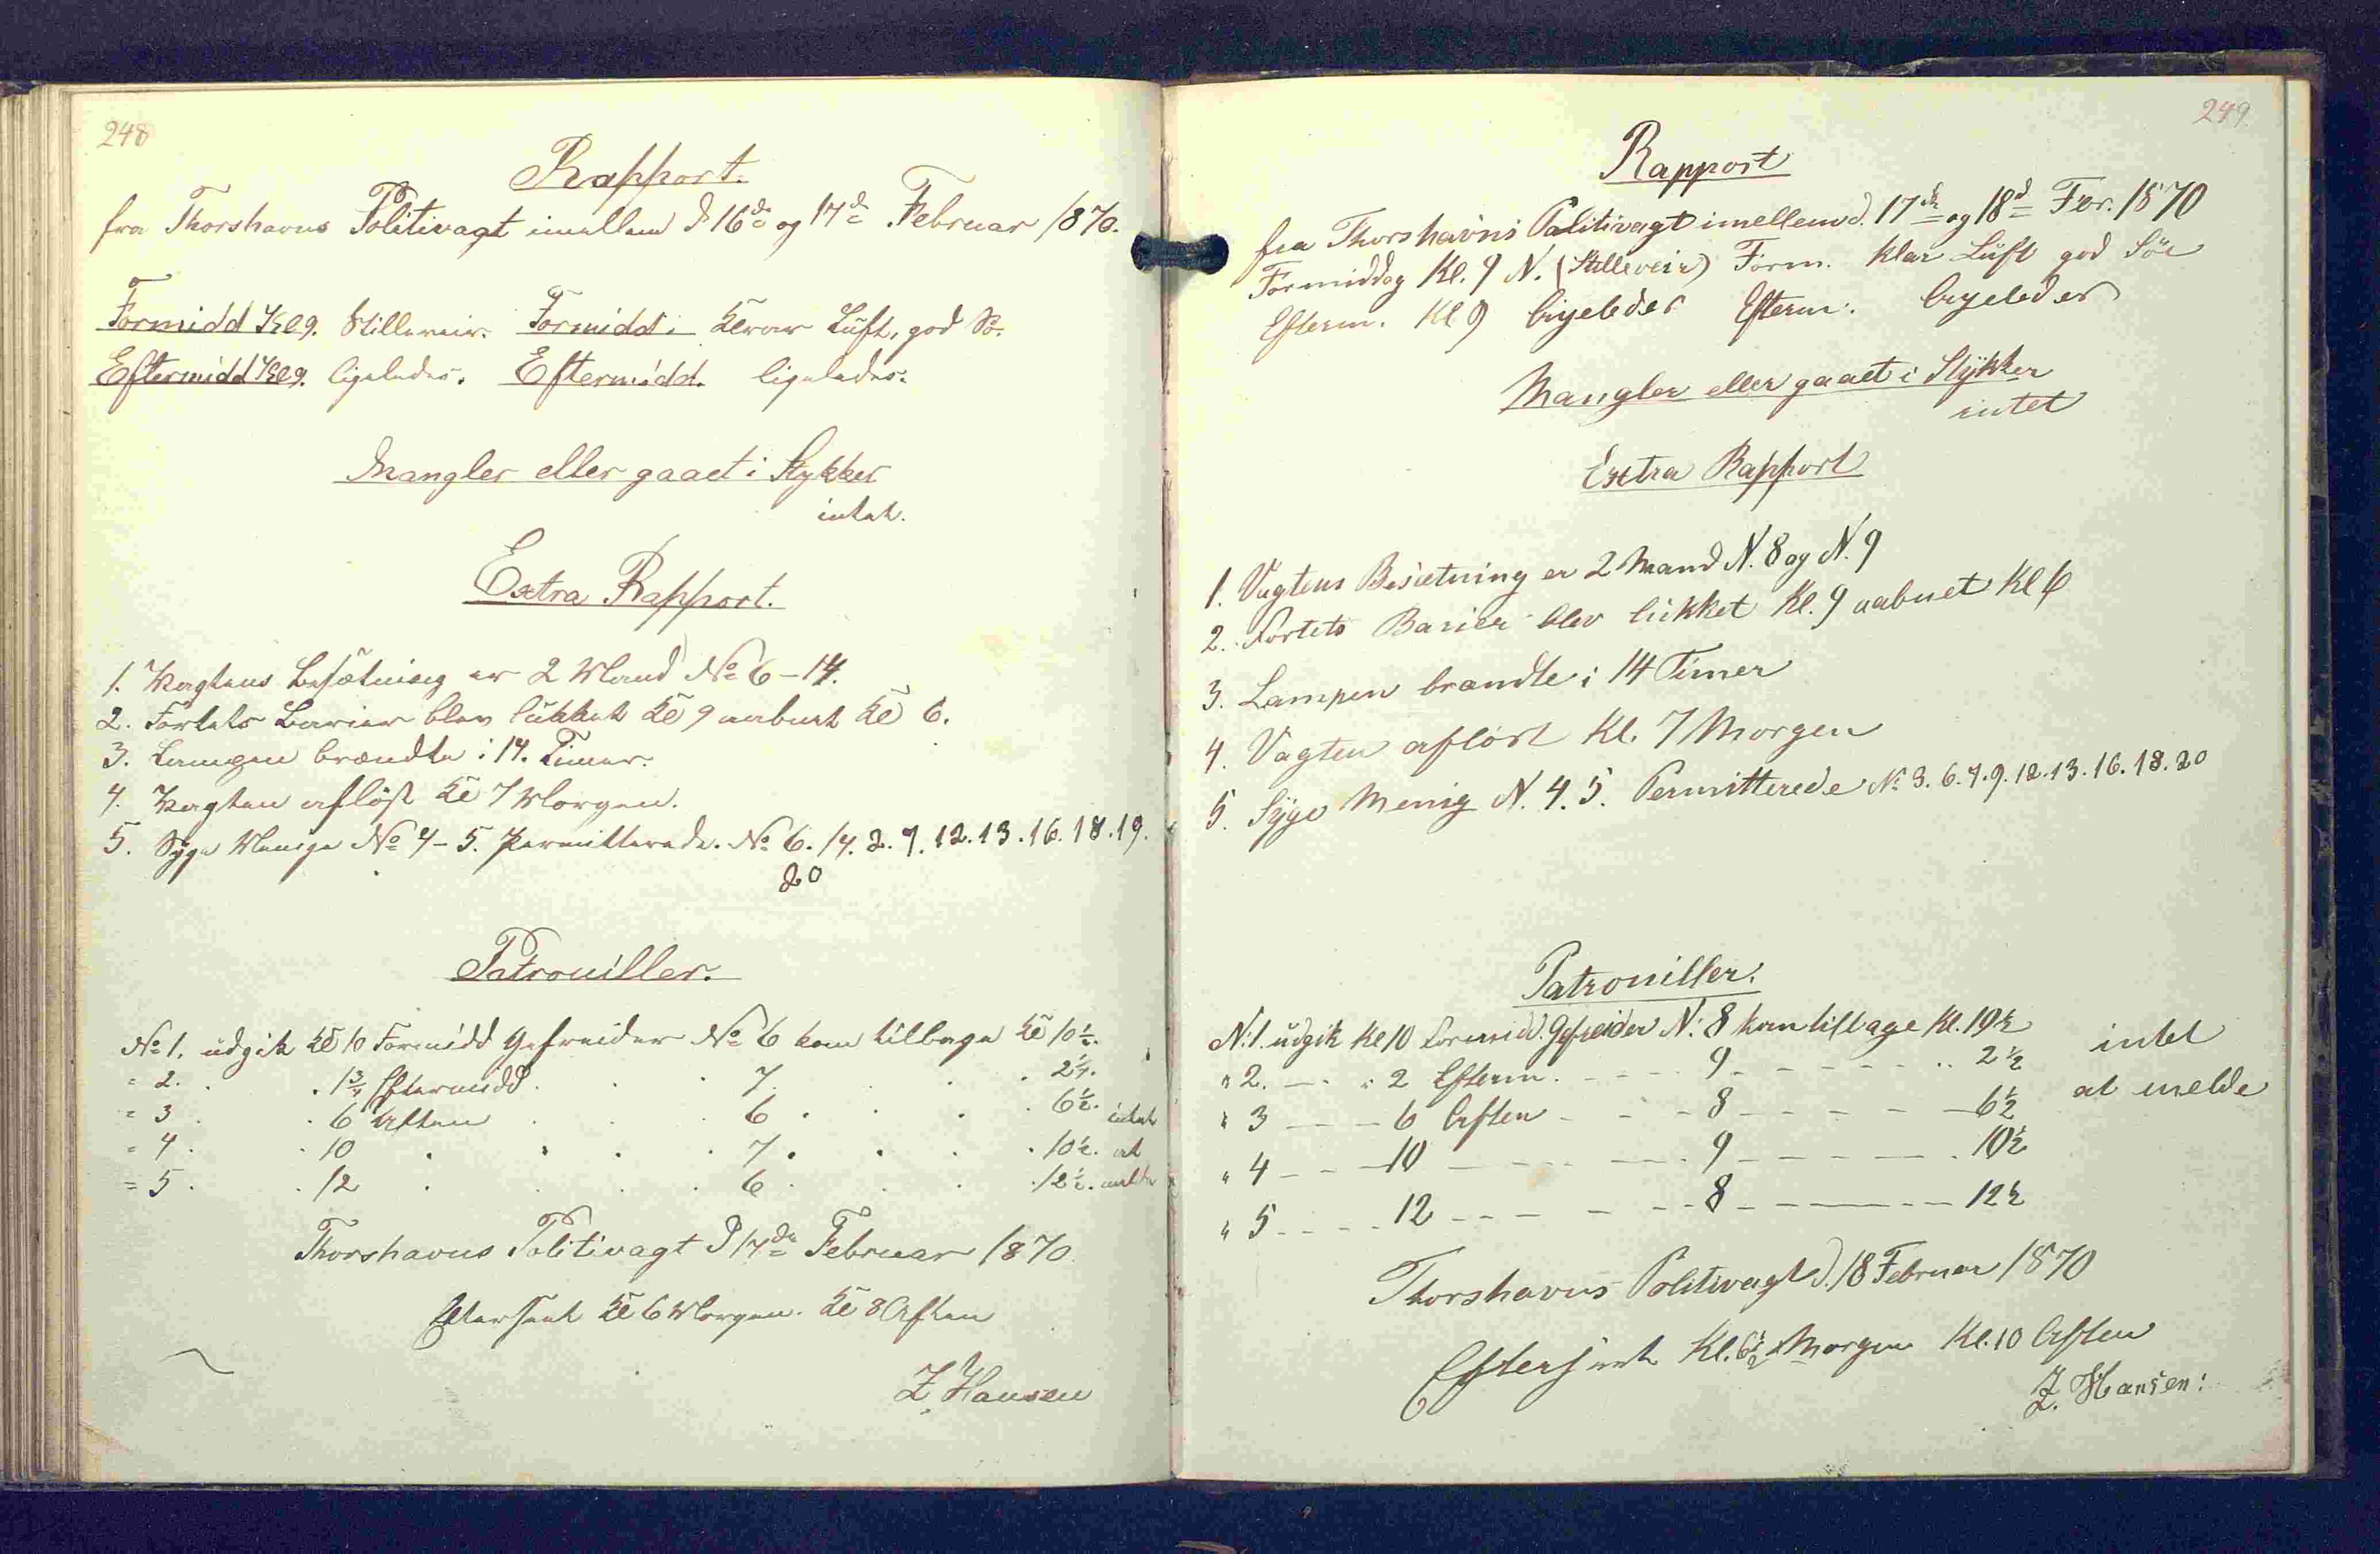 248
Rapport.
fra Thorshavns Politivagt imellem d 16de og 17de Februar 1870.
Formidd Kl 9. Stilleveir. Formidd: Klar Luft, god Sö.
Eftermidd Kl 9. ligeledes. Eftermidd. ligeledes.
Mangler eller gaaet i Stykker
intet.
Extra Rapport.
1. Vagtens Besætning er 2 Mand No 6 - 14.
2. Fortets Barier blev lükket Kl 9 aabnet Kl 6.
3. Lampen brændte i 14. Timer.
4. Vagten aflöst Kl 7 Morgen.
5. Syge Menige No 4 - 5. Permitterede. No 6. 14. 2. 9. 12. 13. 16. 18. 19.
20
Patrouiller.
No 1. üdgik Kl 10 Formidd Gefreider No 6 kom tilbage Kl 10½.
" 2. . 1¾ Eftermidd . . 7. . . 2¼.
" 3 . 6 Aften . . 6 . . . 6½. intet
" 4. . 10 . . . 7. . . . 10½. at
" 5. . 12 . . . 6 . . . 12½. melde
Thorshavns Politivagt d 17de Februar 1870.
Efterseet Kl 6 Morgen. Kl 8 Aften
Z. Hansen
249
Rapport
fra Thorshavns Politivagt imellem d. 17de og 18d Febr. 1870
Formiddag Kl. 9 N. (Stilleveir) Form. klar Lüft god Söe
Efterm. Kl 9 ligeledes Efterm. ligeledes
Mangler eller gaaet i Stÿkker
intet
Extra Rapport
1. Vagtens Besætning er 2 Mand N. 8 og N. 9
2. Fortets Barier blev lükket Kl. 9 aabnet Kl 6
3. Lampen brændte i 14 Timer
4. Vagten aflöst Kl. 7 Morgen
5. Sÿge Menig N. 4. 5. Permitterede No 3. 6. 7. 9. 12. 13. 16. 18. 20
Patrouiller.
N. 1. üdgik Kl 10 Formidd. Gefreider N. 8 kom tilbage Kl. 10½ intet
" 2. - . " 2 Efterm. - - - 9 - - - - 2½
" 3 - - - 6 Aften - - - 8 - - - - 6½ at melde
" 4 - - - 10 - - - - 9 - - - - 10½
" 5 - - - 12 - - - - 8 - - - - 12½
Thorshavns Politivagt d. 18 Februar 1870
Efterseet Kl. 6½ Morgen Kl. 10 Aften
Z. Hansen: